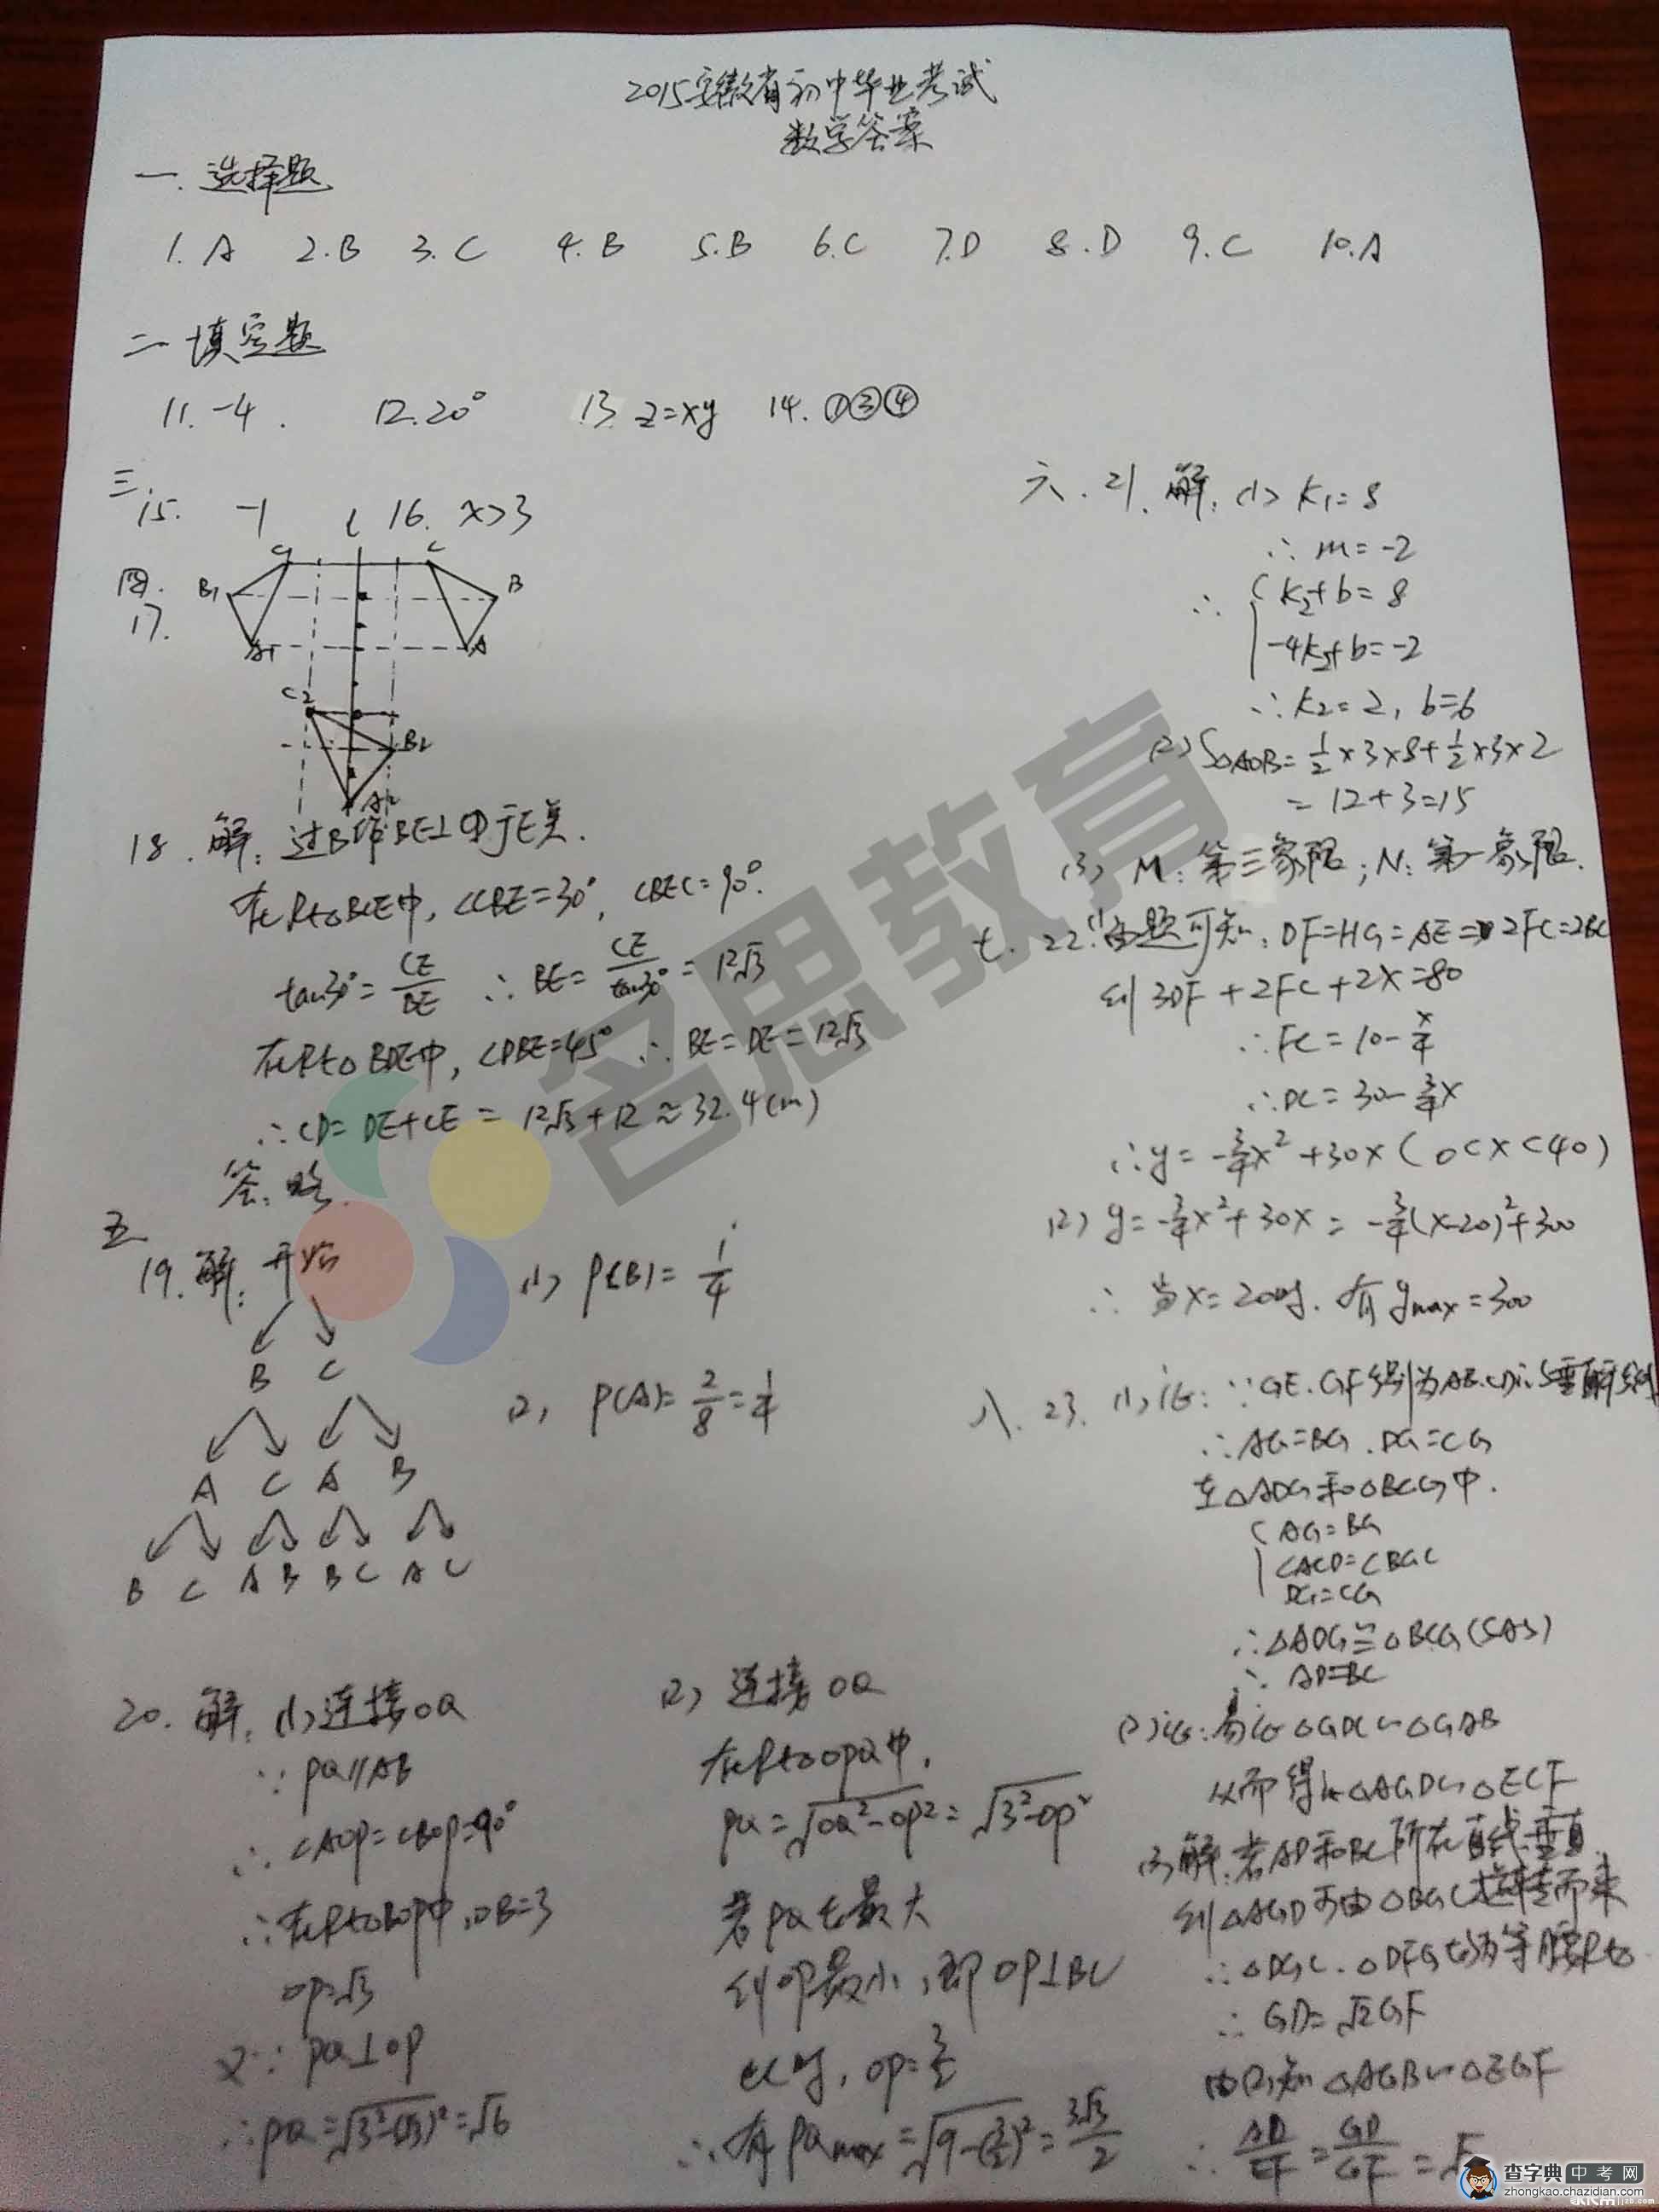 2015安徽省初中毕业考试
数学答案
一. 选择题
1. A 2. B 3. C 4. B 5. B 6. C 7. D 8. D 9. C 10. A
二 填空题
11. -4. 12. 20° 13 z=xy 14. ①③④
三.
15. -1 16. x>3
四.
17.
l
C B A
B1 A1
C2 B2 A2
18. 解: 过B作BE⊥CD于E点.
在Rt△BCE中, ∠CBE=30°, ∠BEC=90°.
tan30°=CE/BE ∴ BE=CE/tan30°=12√3
在Rt△BDE中, ∠DBE=45° ∴ BE=DE=12√3
∴CD=DE+CE=12√3+12≈32.4(m)
答: 略.
五
19. 解: 开始
B C
A C A B
B C A B B C A C
(1) P(B)=1/4
(2) P(A)=2/8=1/4
20. 解: (1) 连接OQ
∵ PQ//AB
∴ ∠AOP=∠BOP=90°
∴在Rt△BOP中, OB=3
OP=√3
又∵ PQ⊥OP
∴PQ=√(3²-(√3)²)=√6
(2) 连接OQ
在Rt△OPQ中,
PQ=√(OQ²-OP²)=√(3²-OP²)
若PQ长最大
则OP最小, 即OP⊥BC
此时, OP=3/2
∴有PQmax=√(9-(3/2)²)=3√3/2
六. 21. 解: (1) K1=8
∴ m=-2
∴ { K2+b=8
-4K2+b=-2
∴ K2=2, b=6
(2) S△AOB=1/2×3×8+1/2×3×2
=12+3=15
(3) M: 第三象限; N: 第一象限.
七. 22. (1) 由题可知: DF=HG=AE=2FC=2BC
则3DF+2FC+2X=80
∴FC=10-x/4
∴DC=30-3/4x
∴y=-3/4x²+30x (0<x<40)
(2) y=-3/4x²+30x=-3/4(x-20)²+300
∴ 当x=20时. 有ymax=300
八. 23. (1) 证: ∵GE. GF分别为AB. CD
∴AG=BG. DG=CG
在△ADG和△BCG中.
{ AG=BG
∠AGD=∠BGC
DG=CG
∴△ADG≌△BCG(SAS)
∴ AD=BC
(2) 证: 易证△GDC∽△GAB
从而得△AGD∽△EGF
(3) 解: 若AD和BC所在直线垂直.
则△AGD可由△BGC旋转而来
∴△DGC. △DFG均为等腰Rt△
∴ GD=√2GF
由(2)知△AGB∽△EGF
∴ AD/EF=GD/GF=
名思教育
查字典 中考网
zhongkao.chazidian.com